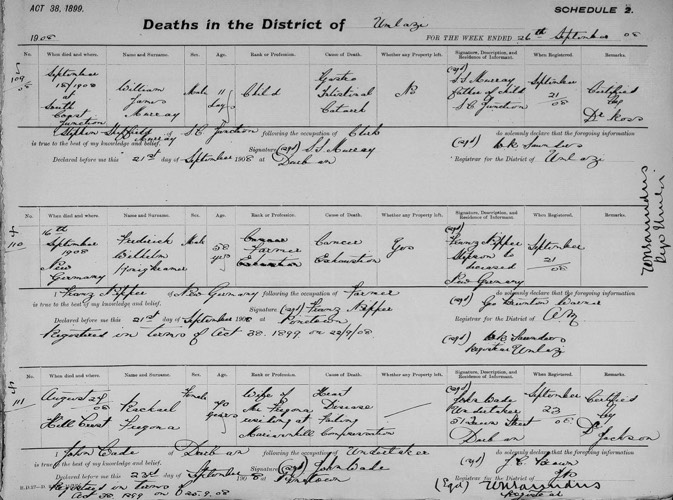 ACT 38, 1899.
SCHEDULE 2.
Deaths in the District of Umlazi
1908
FOR THE WEEK ENDED 26th September 08
No. When died and where. Name and Surname. Sex. Age. Rank or Profession. Cause of Death. Whether any Property left. Signature, Description, and Residence of Informant. When Registered. Remarks.
109
08
September 18/1908 at South Coast Junction
William James Murray
Male
11 days
Child
Gastro Intestinal Catarrh
No
(sgd) S S Murray father of child S C Junction
September 21/08
Certified by Dr Ross
I Stephen Sheffield Murray of S C Junction following the occupation of Clerk do solemnly declare that the foregoing information
is true to the best of my knowledge and belief. Signature (sgd) S S Murray (sgd) W K Saunders
Declared before me this 21st day of September 1908 at Durban Registrar for the District of Umlazi
No. When died and where. Name and Surname. Sex. Age. Rank or Profession. Cause of Death. Whether any Property left. Signature, Description, and Residence of Informant. When Registered. Remarks.
110
16th September 1908 New Germany
Frederick Wilhelm
Male
58 yrs
Farmer
Cancer Exhaustion
Yes
(sgd) Franz Nipper Stepson to deceased New Germany
September 21/08
I Franz Nipper of New Germany following the occupation of Farmer do solemnly declare that the foregoing information
is true to the best of my knowledge and belief. Signature (sgd) Franz Nipper (sgd)
Declared before me this 21st day of September 1908 at Pinetown Registrar for the District of A.M.
Registered in terms of Act 38. 1899 on 22/9/08 (sgd) W K Saunders
Registrar Umlazi
No. When died and where. Name and Surname. Sex. Age. Rank or Profession. Cause of Death. Whether any Property left. Signature, Description, and Residence of Informant. When Registered. Remarks.
111
August 29/08 Hill Crest
Rachael Fregona
Female
40 years
Wife of Mr Fregona residing at Mariannhill
Heart Disease Failing Compensation
(sgd) John Wade Undertaker Durban
September 23/08
Certified by Dr Jackson
I John Wade of Durban following the occupation of Undertaker do solemnly declare that the foregoing information
is true to the best of my knowledge and belief. Signature (sgd) John Wade
Declared before me this 23d day of September 1908 at Pinetown
Registered in terms of Act 38 1899 on 25.9.08 (Sgd) W K Saunders
Registrar